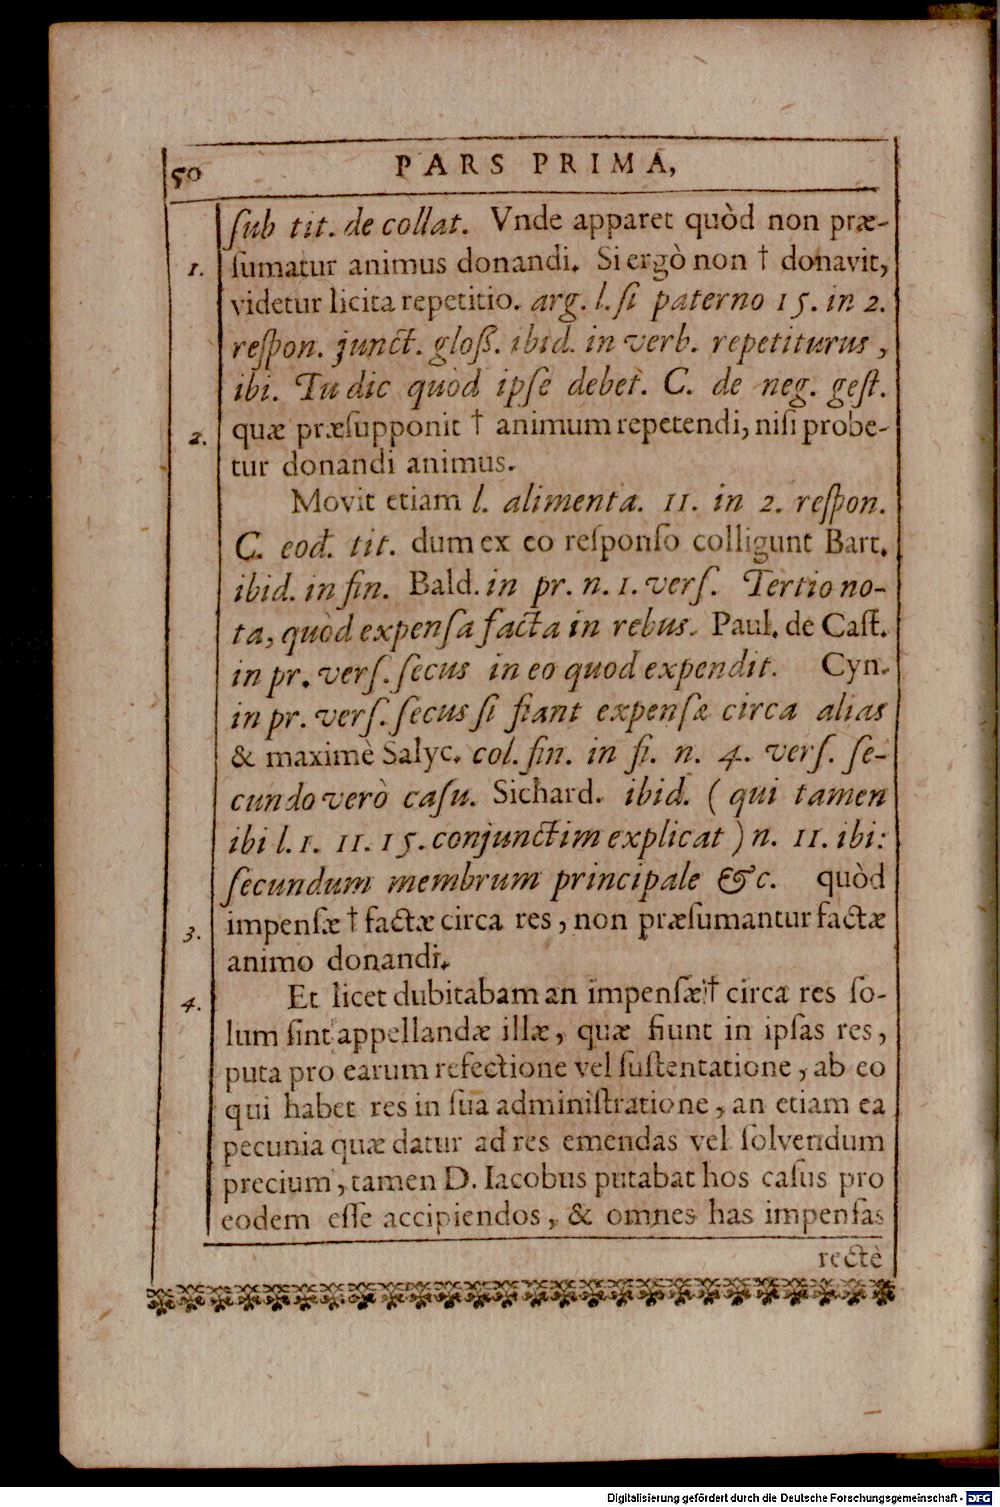 50 PARS PRIMA,
ſub tit. de collat. Vnde apparet quòd non præ-
1. ſumatur animus donandi. Si ergò non † donavit,
videtur licita repetitio. arg. l. ſi paterno 15. in 2.
reſpon. junct. gloſſ. ibid. in verb. repetiturus,
ibi. Tu dic quòd ipſe debet. C. de neg. geſt.
2. quæ præſupponit † animum repetendi, niſi probe-
tur donandi animus.
Movit etiam l. alimenta. 11. in 2. reſpon.
C. eod. tit. dum ex eo reſponſo colligunt Bart.
ibid. in fin. Bald. in pr. n. 1. verſ. Tertio no-
ta, quòd expenſa facta in rebus. Paul. de Caſt.
in pr. verſ. ſecus in eo quod expendit. Cyn.
in pr. verſ. ſecus ſi fiant expenſæ circa alias
& maximè Salyc. col. fin. in fi. n. 4. verſ. ſe-
cundo verò caſu. Sichard. ibid. (qui tamen
ibi l. 1. 11. 15. conjunctim explicat) n. 11. ibi:
ſecundum membrum principale &c. quòd
3. impenſæ † factæ circa res, non præſumantur factæ
animo donandi.
4. Et licet dubitabam an impenſæ † circa res ſo-
lum ſint appellandæ illæ, quæ fiunt in ipſas res,
puta pro earum refectione vel ſuſtentatione, ab eo
qui habet res in ſua adminiſtratione, an etiam ea
pecunia quæ datur ad res emendas vel ſolvendum
precium, tamen D. Iacobus putabat hos caſus pro
eodem eſſe accipiendos, & omnes has impenſas
rectè
Digitalisierung gefördert durch die Deutsche Forschungsgemeinschaft - DFG